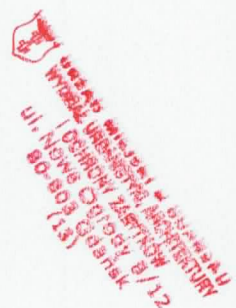 URZĄD MIEJSKI w GDAŃSKU
WYDZIAŁ URBANISTYKI, ARCHITEKTURY
I OCHRONY ZABYTKÓW
ul. Nowe Ogrody 8/12
80-803 Gdańsk
(13)